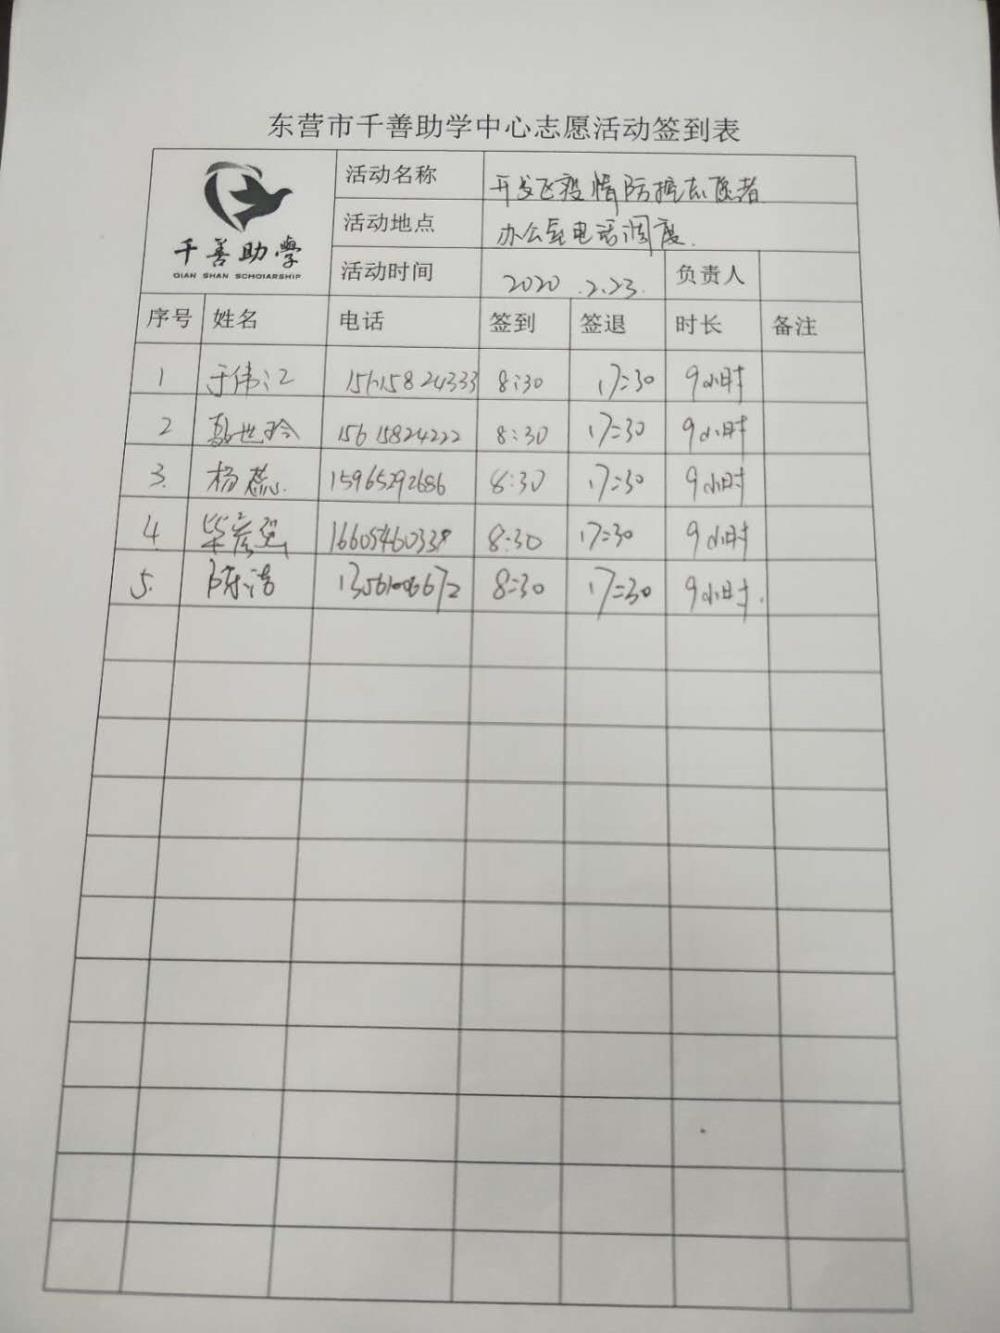 东营市千善助学中心志愿活动签到表
千善助學
QIAN SHAN SCHOIARSHIP
活动名称 开发区疫情防控志愿者
活动地点 办公室电话调度.
活动时间 2020.2.23. 负责人
序号 姓名 电话 签到 签退 时长 备注
1 于伟江 15615824333 8:30 17:30 9小时
2 世玲 15615824222 8:30 17:30 9小时
3. 杨蕊. 15965292686 8:30 17:30 9小时
4. 毕彦 16605460338 8:30 17:30 9小时
5. 陈洁 8:30 17:30 9小时.